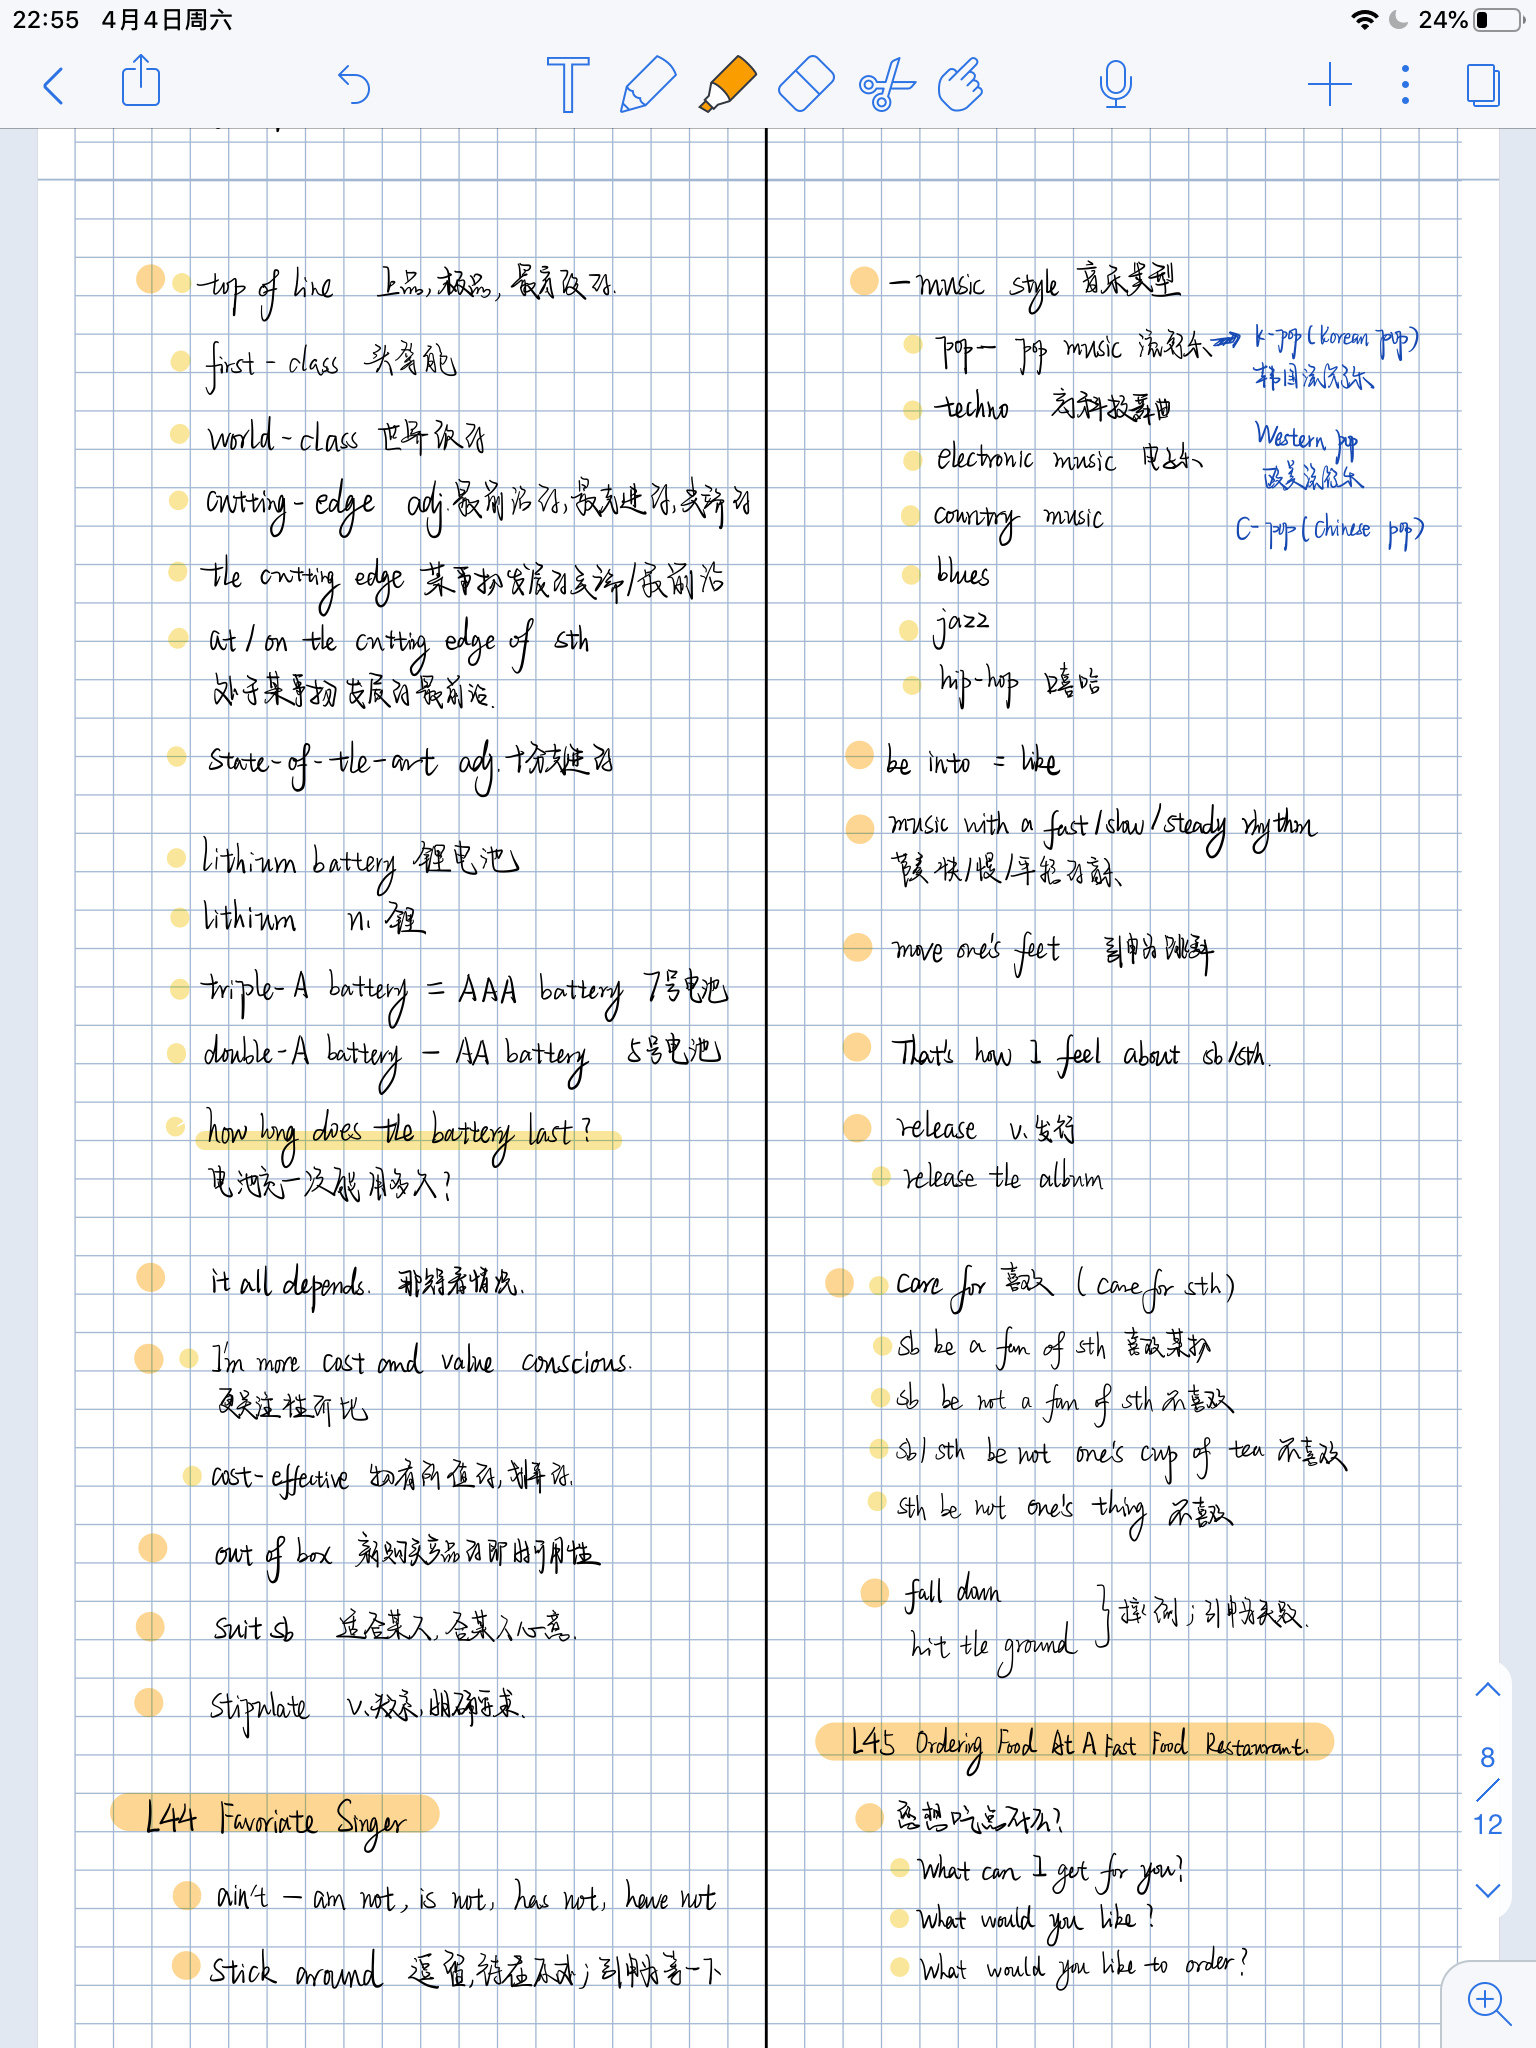 22:55 4月4日周六
24%
top of line 上品,极品,最高级的.
first-class 头等舱
world-class 世界级的
cutting-edge adj.最前沿的,最先进的,尖端的
the cutting edge 某事物发展的尖端/最前沿
at/on the cutting edge of sth
处于某事物发展的最前沿.
state-of-the-art adj.十分先进的
lithium battery 锂电池
lithium n. 锂
triple-A battery = AAA battery 7号电池
double-A battery — AA battery 5号电池
how long does the battery last?
电池充一次能用多久?
it all depends. 那得看情况.
I'm more cost and value conscious.
更关注性价比
cost-effective 物有所值的,划算的.
out of box 新购买产品的即时可用性
suit sb 适合某人,合某人心意.
stipulate v. 明确要求.
L44 Favoriate Singer
ain't — am not, is not, has not, have not
stick around 逗留,待在 ;引申为等一下
— music style 音乐类型
pop — pop music 流行乐 → K-pop (Korean pop)
韩国流行乐
techno 高科技舞曲
Western pop
electronic music 电子乐
欧美流行乐
country music
C-pop (Chinese pop)
blues
jazz
hip-hop 嘻哈
be into = like
music with a fast/slow/steady rhythm
节奏快/慢/平稳的音乐
move one's feet 引申为跳舞
That's how I feel about sb/sth.
release v.发行
release the album
care for 喜欢 (care for sth)
sb be a fan of sth 喜欢某物
sb be not a fan of sth 不喜欢
sb/sth be not one's cup of tea 不喜欢
sth be not one's thing 不喜欢
fall down
hit the ground } 摔倒;引申为失败.
L45 Ordering Food At A Fast Food Restaurant.
您想吃点什么?
What can I get for you?
What would you like?
What would you like to order?
8
/
12